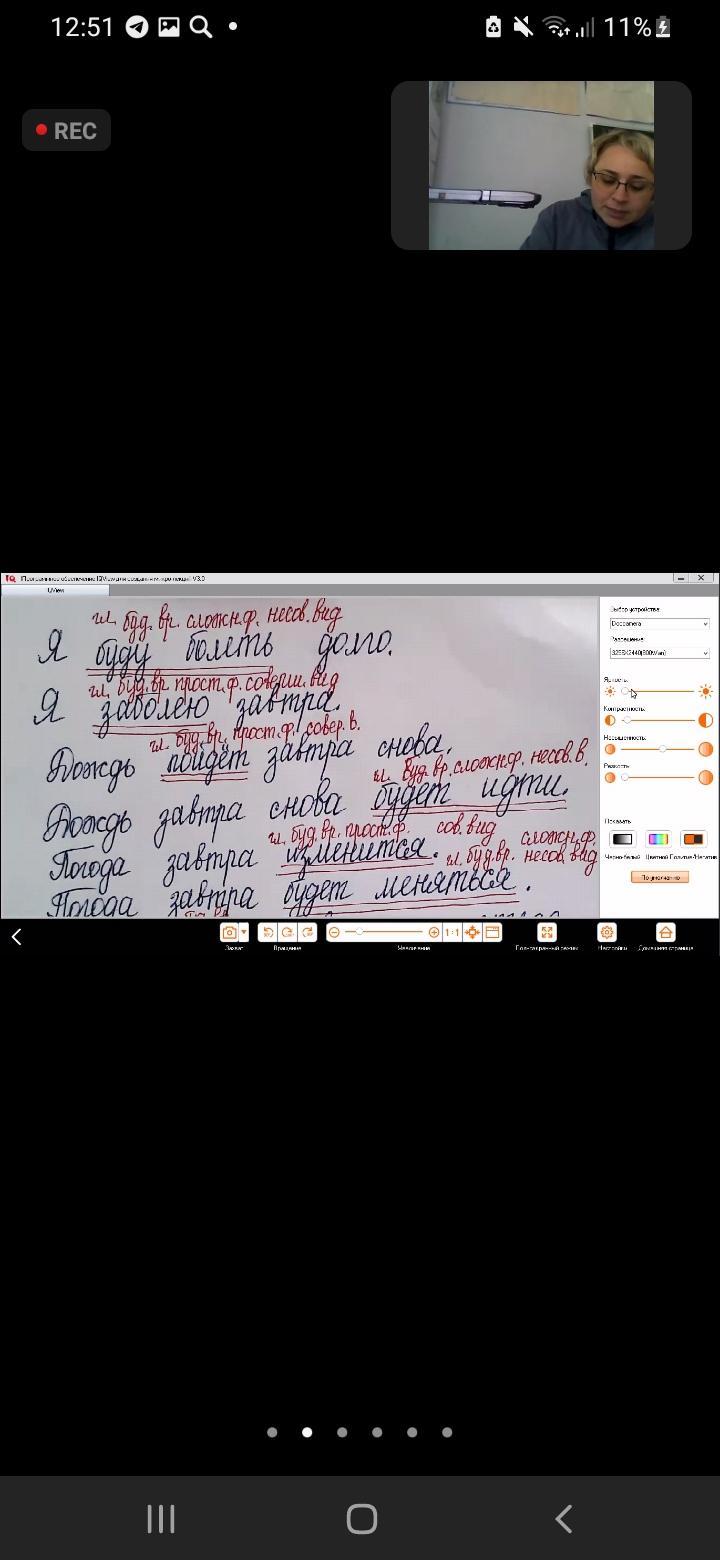 12:51 11%
REC
Программное обеспечение IQView для создания микро-лекций V3.0
IQView
Выбор устройства:
Doccamera
Разрешение:
Яркость:
Контрастность:
Насыщенность:
Резкость:
Показать
Черно-белый Цветной Позитив/Негатив
По умолчанию
гл. буд. вр. сложн.ф. несов. вид
Я буду болеть долго.
гл. буд. вр прост. ф. соверш. вид
Я заболею завтра.
гл. буд. вр. прост.ф. совер. в.
Дождь пойдёт завтра снова.
гл. буд. вр. сложн.ф. несов. в.
Дождь завтра снова будет идти.
гл. буд. вр. прост.ф. сов. вид
Погода завтра изменится.
сложн.ф.
гл. буд. вр. несов. вид
Погода завтра будет меняться.
Захват Вращение Увеличение 1:1 Полноэкранный режим Настройки Домашняя страница